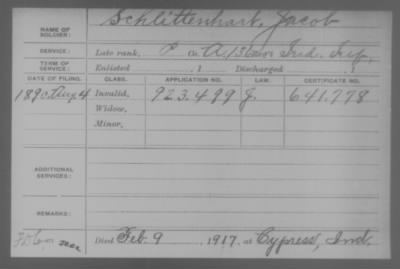 NAME OF SOLDIER: Schlittenhart, Jacob
SERVICE: Late rank, P Co. A, 136 Ind. Inf,
TERM OF SERVICE: Enlisted , 1 Discharged , 1
DATE OF FILING. CLASS. APPLICATION NO. LAW. CERTIFICATE NO.
1890. Aug 4 Invalid, 923.499 J. 641.778
Widow,
Minor,
ADDITIONAL SERVICES:
REMARKS:
Died Feb. 9, 1917, at Cypress, Ind.